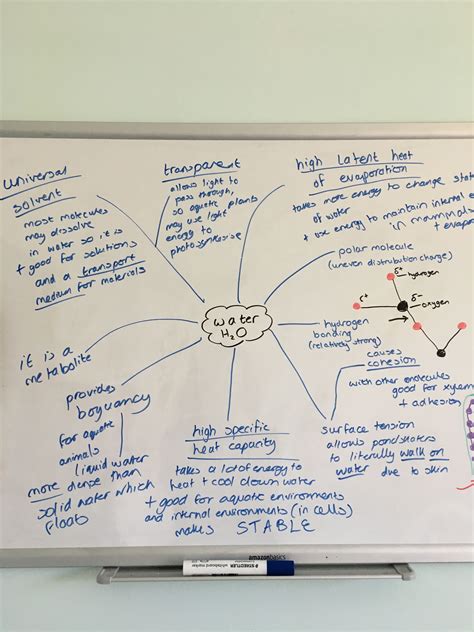 universal
solvent
most molecules
may dissolve
in water so it is
+ good for solutions
and a transport
medium for materials
transparent
allows light to
pass through,
so aquatic plants
may use light
energy to
photosynthesise
high latent heat
of evaporation
takes more energy to change stat
of water
+ use energy to maintain internal e
in mammals
+ evapor
polar molecule
(uneven distribution charge)
δ+
hydrogen
δ+
δ-
oxygen
water
H2O
hydrogen
bonding
(relatively strong)
causes
cohesion
with other molecules
good for xylem
+ adhesion
it is a
metabolite
provides
boyuancy
for aquatic
animals
liquid water
more dense than
solid water which
floats
high specific
heat capacity
takes a lot of energy to
heat + cool down water
+ good for aquatic environments
and internal environments (in cells)
makes STABLE
surface tension
allows pondskaters
to literally walk on
water due to skin
amazonbasics
STAEDTLER
whiteboard marker